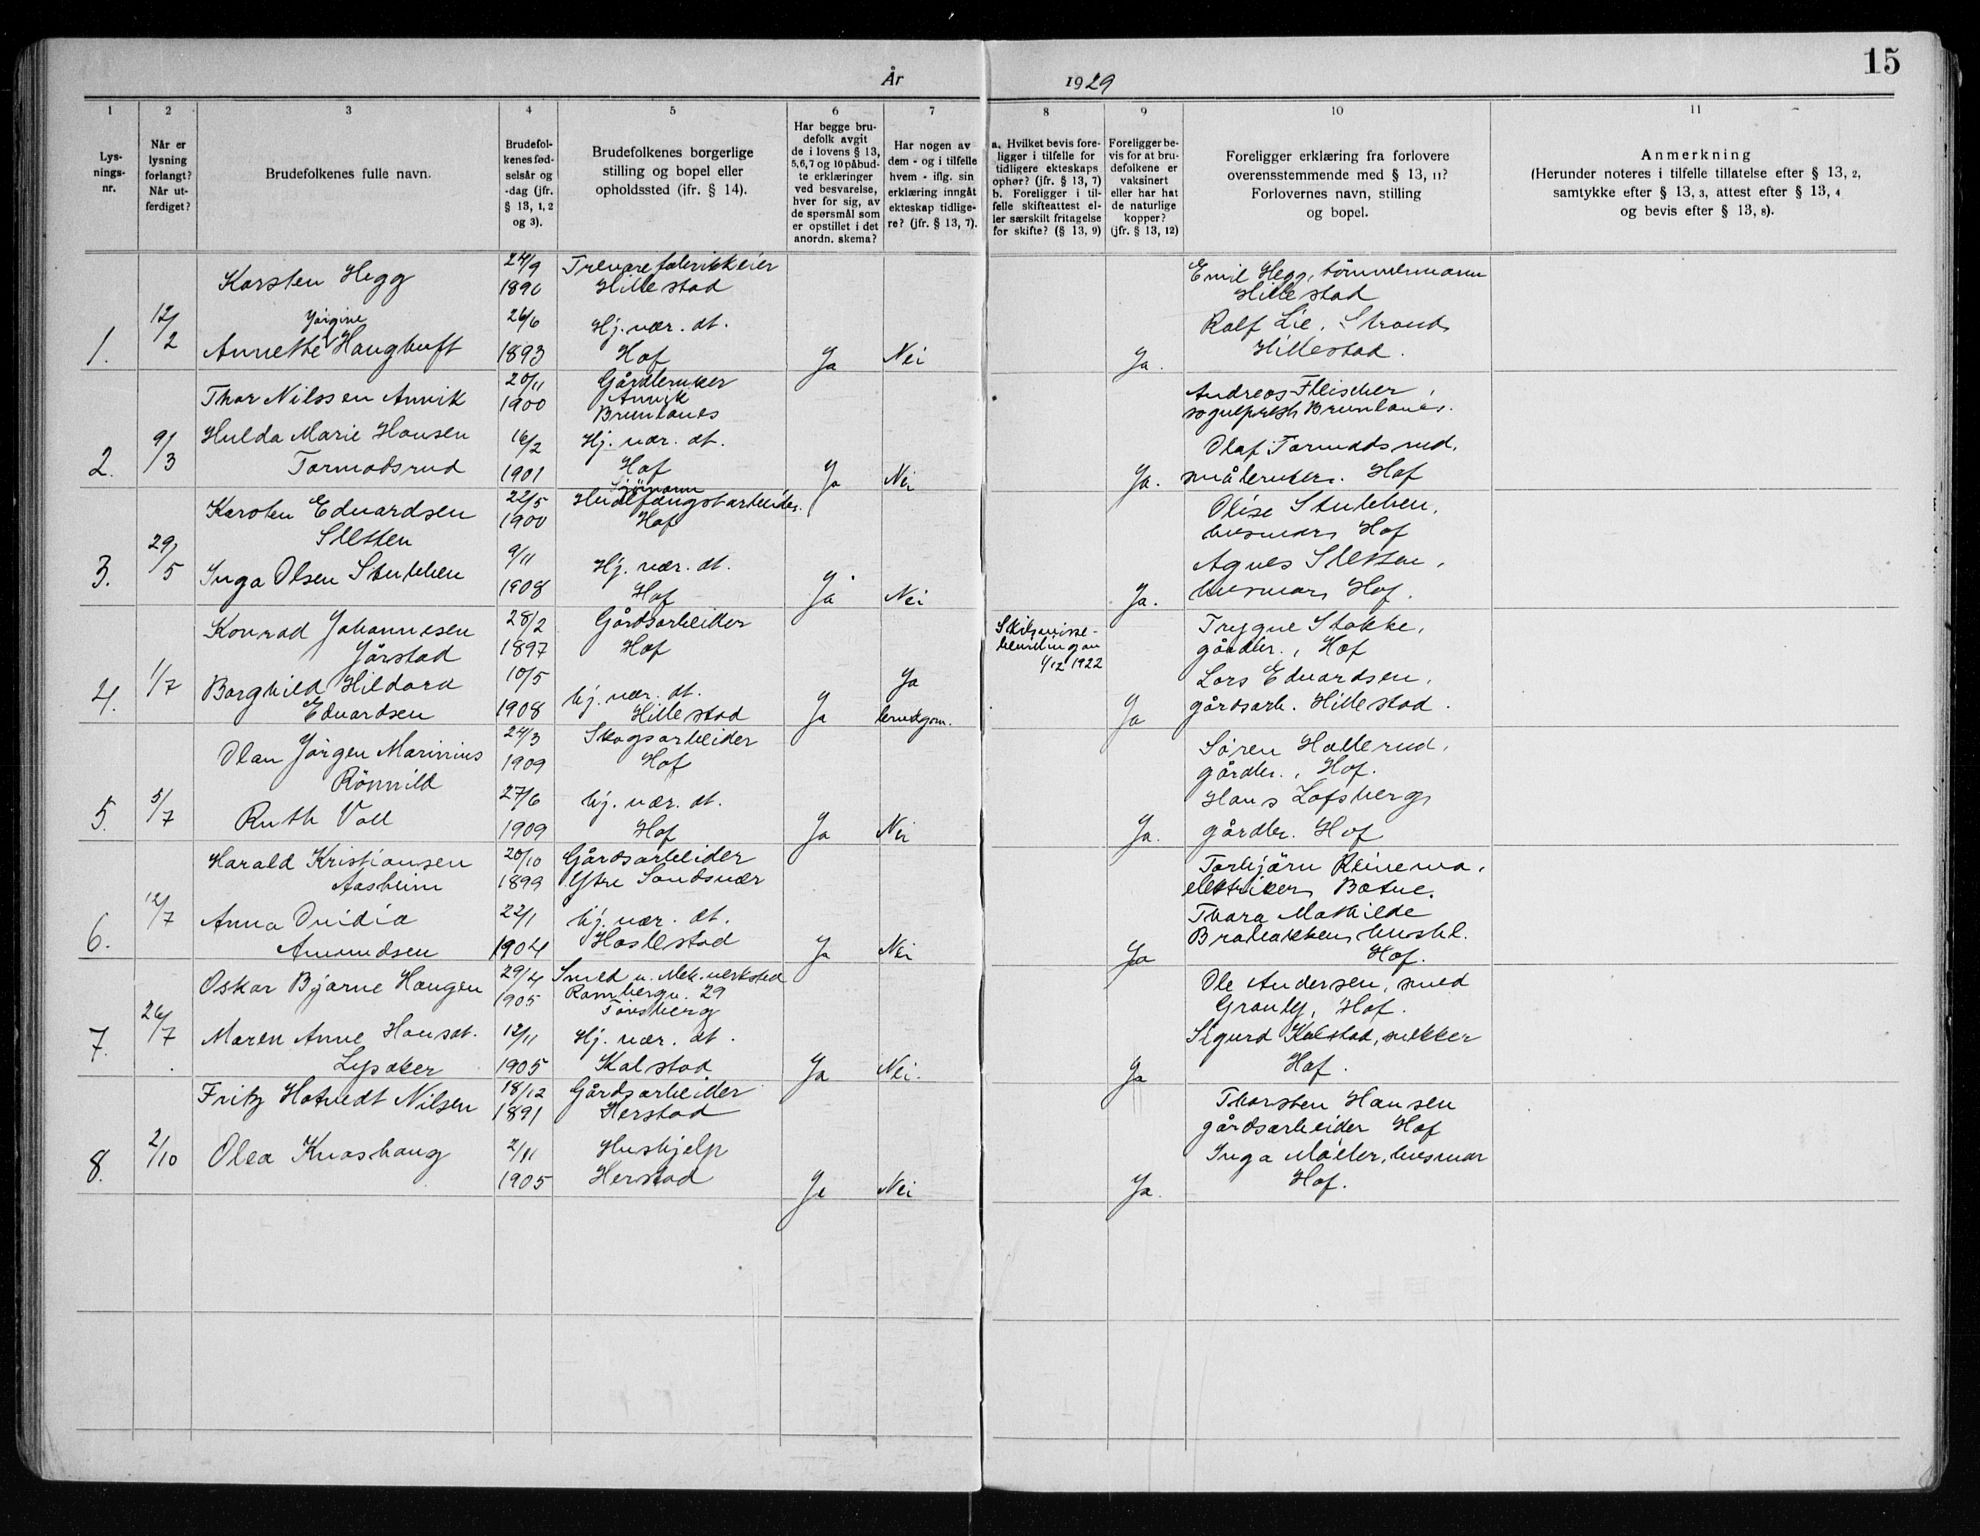 15
År 1929
1 2 3 4 5 6 7 8 9 10 11
Lys-
nings-
nr.
Når er
lysning
forlangt?
Når ut-
ferdiget?
Brudefolkenes fulle navn.
Brudefol-
kenes fød-
selsår og
-dag (jfr.
§ 13, 1, 2
og 3).
Brudefolkenes borgerlige
stilling og bopel eller
opholdssted (jfr. § 14).
Har begge bru-
defolk avgit
de i lovens § 13,
5,6,7 og 10 påbud-
te erklæringer
ved besvarelse,
hver for sig, av
de spørsmål som
er opstillet i det
anordn. skema?
Har nogen av
dem - og i tilfelle
hvem - iflg. sin
erklæring inngått
ekteskap tidlige-
re? (jfr. § 13, 7).
a. Hvilket bevis fore-
ligger i tilfelle for
tidligere ekteskaps
ophør? (jfr. § 13, 7)
b. Foreligger i til-
felle skifteattest el-
ler særskilt fritagelse
for skifte? (§ 13, 9)
Foreligger be-
vis for at bru-
defolkene er
vaksinert
eller har hat
de naturlige
kopper?
(jfr. § 13, 12)
Foreligger erklæring fra forlovere
overensstemmende med § 13, 11?
Forlovernes navn, stilling
og bopel.
Anmerkning
(Herunder noteres i tilfelle tillatelse efter § 13, 2,
samtykke efter § 13, 3, attest efter § 13, 4
og bevis efter § 13, 8).
1.
12/2
Karsten Hegg
24/9
1890
Trevarefabrikkeier
Hillestad
Jørgine
Annette Haughuft
26/6
1893
Hj. vær. dt.
Hof
Ja
Nei
Ja.
Emil Hegg, tømmermann
Hillestad
Rolf Lie, Strand,
Hillestad.
2.
9/3
Thor Nilssen Anvik
20/11
1900
Gårdbruker
Anvik
Brunlanes
Hulda Marie Hansen
Tormodsrud
16/2
1901
Hj. vær. dt.
Hof
Ja
Nei
Ja.
Andreas Fleischer,
sogneprest, Brunlanes.
Olaf Tormodsrud,
småbruker. Hof
3.
29/5
Karsten Edvardsen
Sletten
22/5
1900
Sjømann
Hvalfangstarbeider.
Hof
Inga Olsen Stubben
9/11
1908
Hj. vær. dt.
Hof
Ja
Nei
Ja.
Olise Stubben,
husmor, Hof
Agnes Sletten,
husmor, Hof.
4.
1/7
Konrad Johannesen
Jårstad
28/2
1897
Gårdsarbeider
Hof
Borghild Hildora
Edvardsen
10/5
1908
hj. vær. dt.
Hillestad
Ja
Ja
brudgom.
Skilsmisse-
bevilling av
1/12 1922
Ja
Trygve Stokke,
gårdbr., Hof
Lars Edvardsen,
gårdsarb. Hillestad.
5.
5/7
Olan Jørgen Marinius
Rønnild
24/3
1909
Skogsarbeider
Hof
Ruth Voll
27/6
1909
hj. vær. dt.
Hof
Ja
Nei
Ja.
Søren Hallerud,
gårdbr., Hof.
Hans Lofsberg,
gårdbr. Hof
6.
12/7
Harald Kristiansen
Aasheim
20/10
1899
Gårdsarbeider
Ytre Sandsvær
Anna Ovidia
Amundsen
22/1
1904
hj. vær. dt.
Haslestad
Ja
Nei
Ja
Torbjørn
elektriker, Botne.
Thora Mathilde
Brobakken, hush.
Hof.
7.
26/7
Oskar Bjarne Haugen
29/4
1905
Smed v. Mek. verksted
Rambergv. 29
Tønsberg
Maren Anne Hansdt.
Lysaker
12/11
1905
Hj. vær. dt.
Kalstad
Ja
Nei.
Ja
Ole Andersen, smed
Granly, Hof.
Sigurd Kalstad, snekker
Hof.
8.
2/10
Fritz Hotvedt Nilsen
18/12
1891
Gårdsarbeider
Herstad
Olea Knashaug
2/11
1905
Hushjelp
Herstad
Ja
Nei
Ja.
Thorsten Hansen
gårdsarbeider Hof
Inga Møller, husmor
Hof.